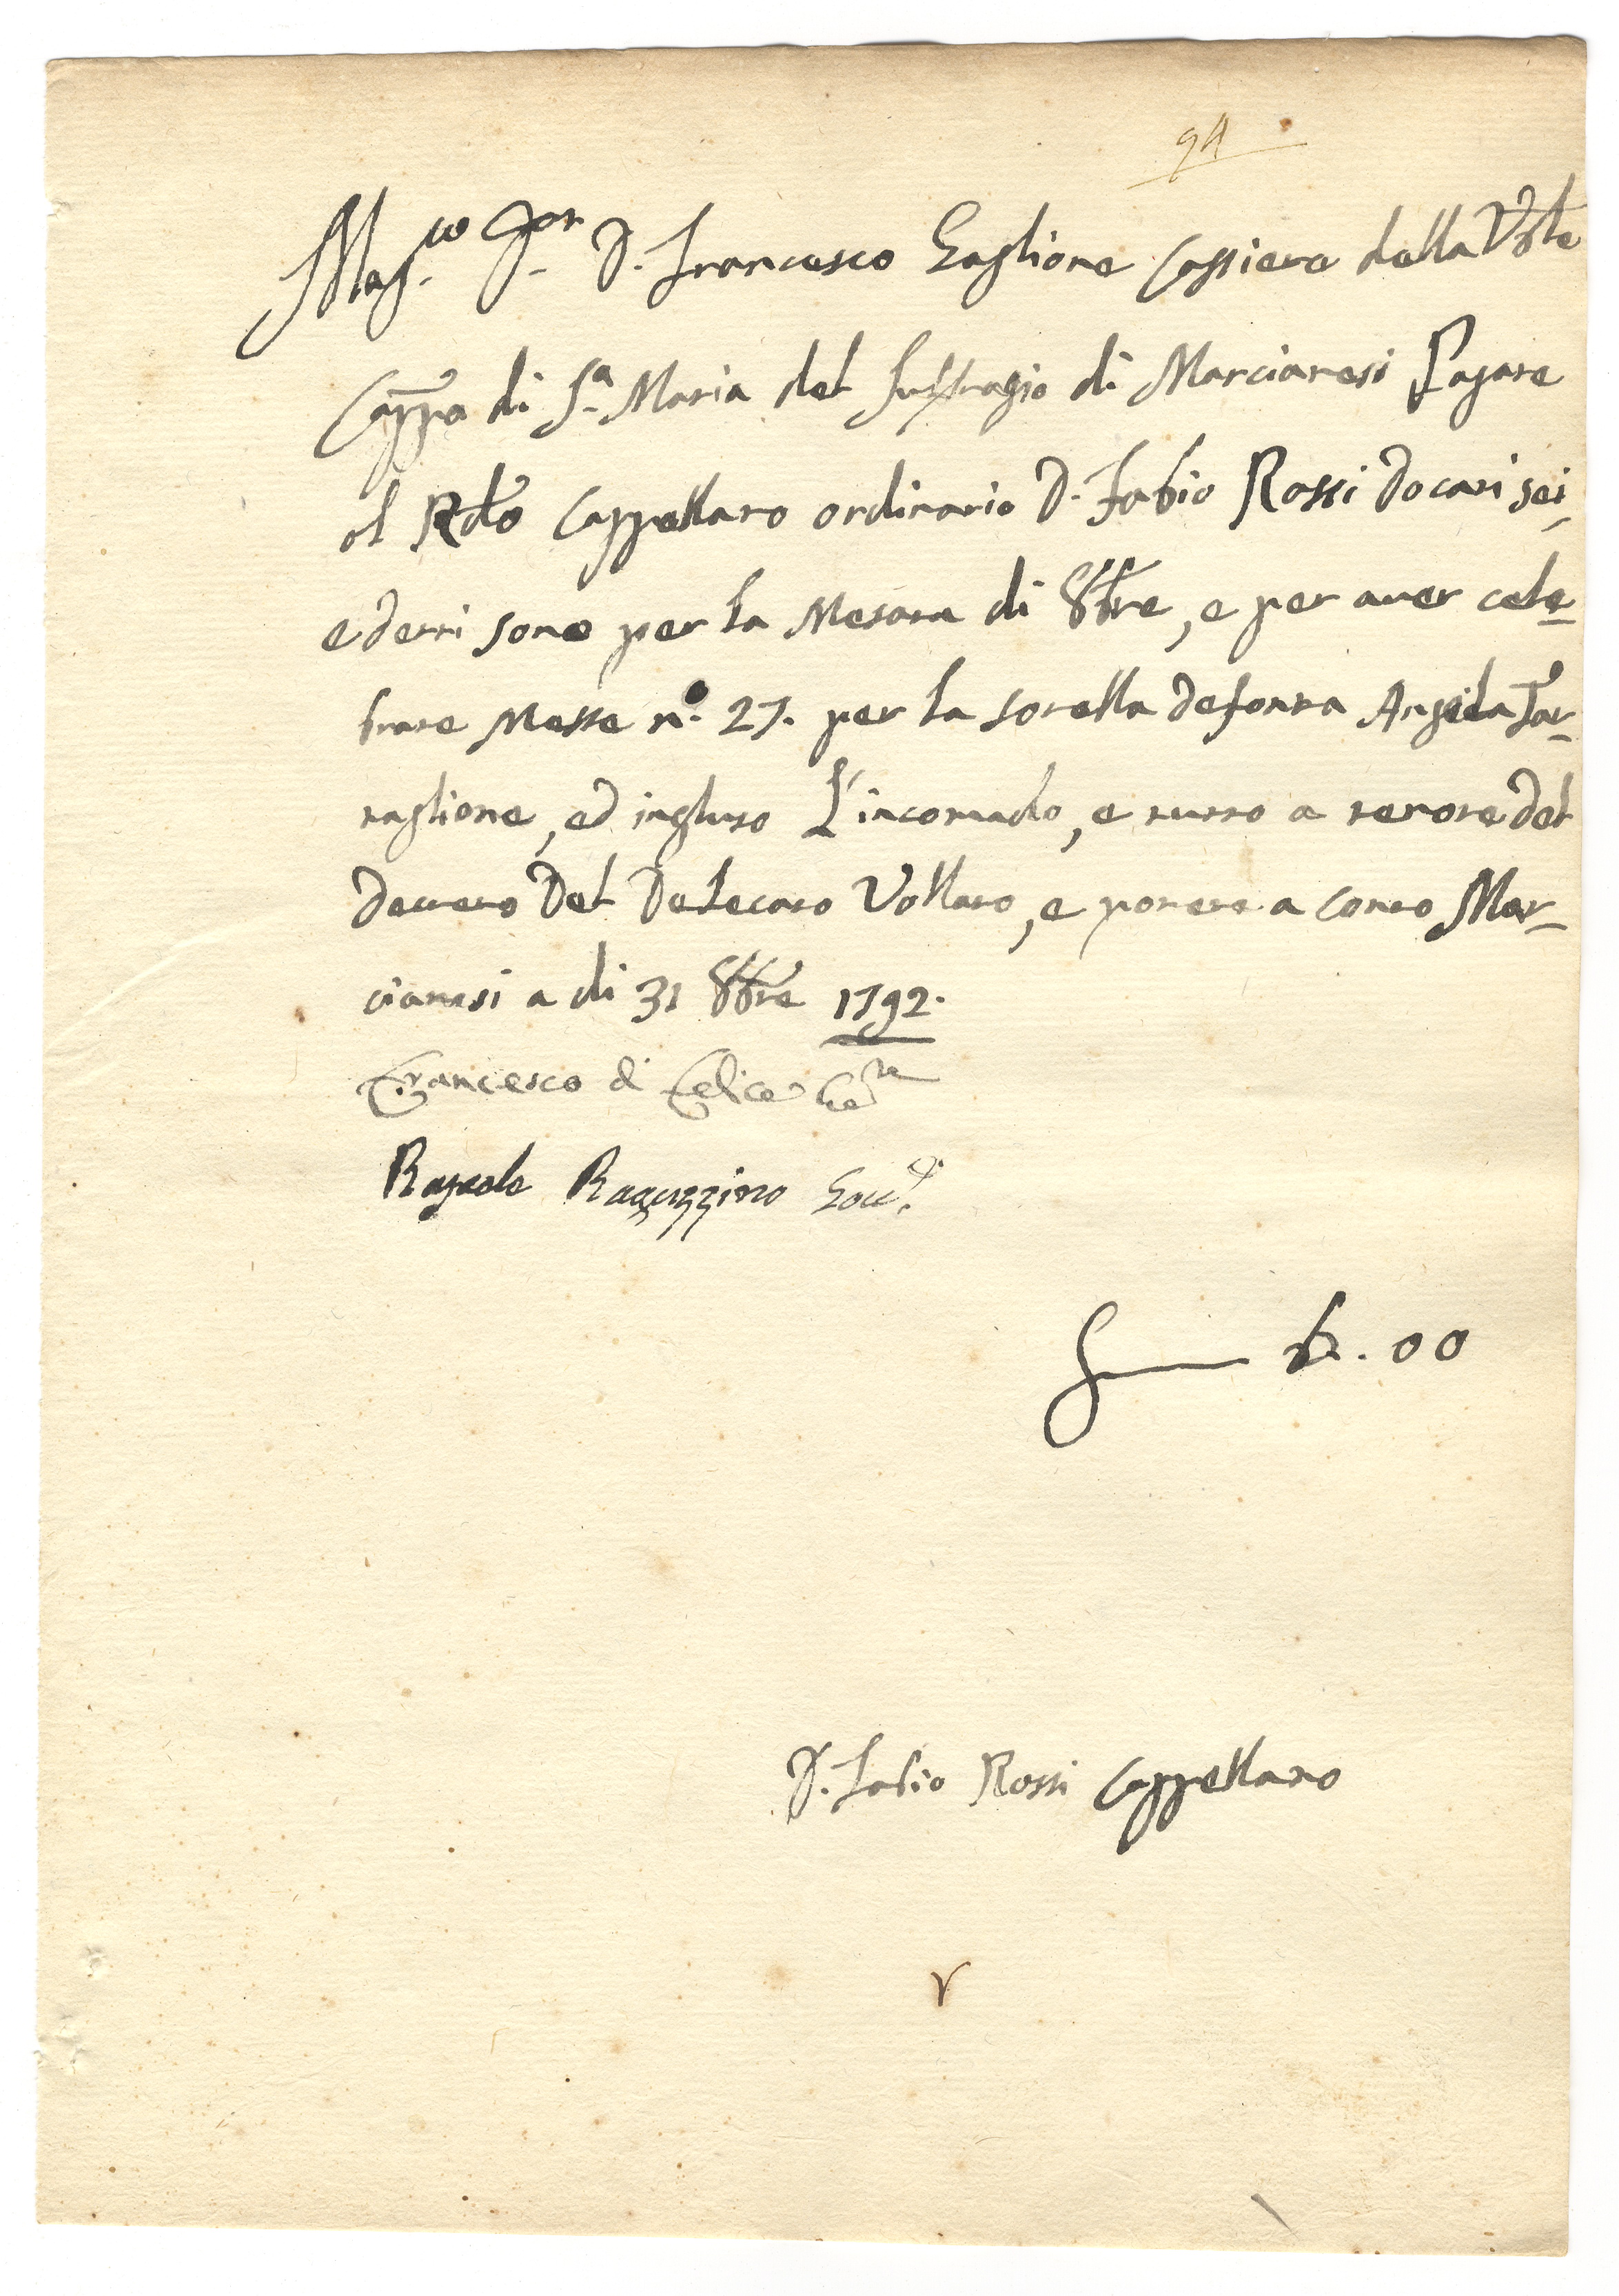 94
Mag.co Sor. D. Francesco Gaglione Cassiere della Vble
Cappa di Sa. Maria del Suffragio di Marcianesi Pagate
al Rdo Cappellano ordinario D. Fabio Rossi Docati sei,
e detti sono per la Mesata di 8bre, e per aver cele-
brate Messe no. 27. per la sorella defonta Angela Tar-
taglione, ed incluso l'incomodo, e tutto a tenore del
Decreto Del Delecato Vollaro, e ponete a conto Mar-
cianesi a di 31 8bre 1792.
Francesco di Felice
Rafaele Raguzzino Gov.
6.00
D. Fabio Rossi Cappellano